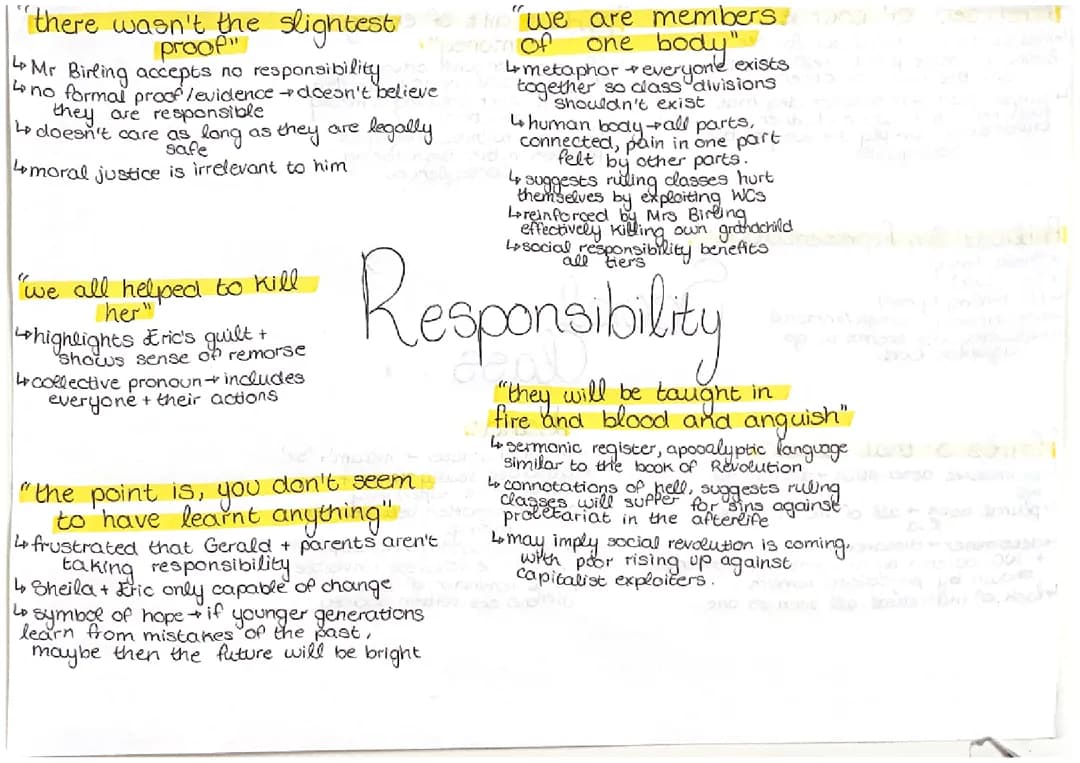 "there wasn't the slightest
proof"
↳Mr Birling accepts no responsibility
↳no formal proof/evidence→doesn't believe
they are responsible
↳doesn't care as long as they are legally
safe
↳moral justice is irrelevant to him
"we are members
of one body"
↳metaphor→everyone exists
together so class divisions
shouldn't exist
↳human body→all parts,
connected, pain in one part
felt by other parts.
↳suggests ruling classes hurt
themselves by exploiting WCs
↳reinforced by Mrs Birling
effectively killing own grandchild
↳social responsibility benefits
all tiers
"we all helped to kill
her"
↳highlights Eric's guilt +
shows sense of remorse
↳collective pronoun→includes
everyone + their actions
Responsibility
"they will be taught in
fire and blood and anguish"
↳sermonic register, apocalyptic language
similar to the book of Revolution
↳connotations of hell, suggests ruling
classes will suffer for sins against
proletariat in the afterlife
↳may imply social revolution is coming,
with poor rising up against
capitalist exploiters.
"the point is, you don't seem
to have learnt anything"
↳frustrated that Gerald + parents aren't
taking responsibility
↳Sheila + Eric only capable of change
↳symbol of hope→if younger generations
learn from mistakes of the past,
maybe then the future will be bright